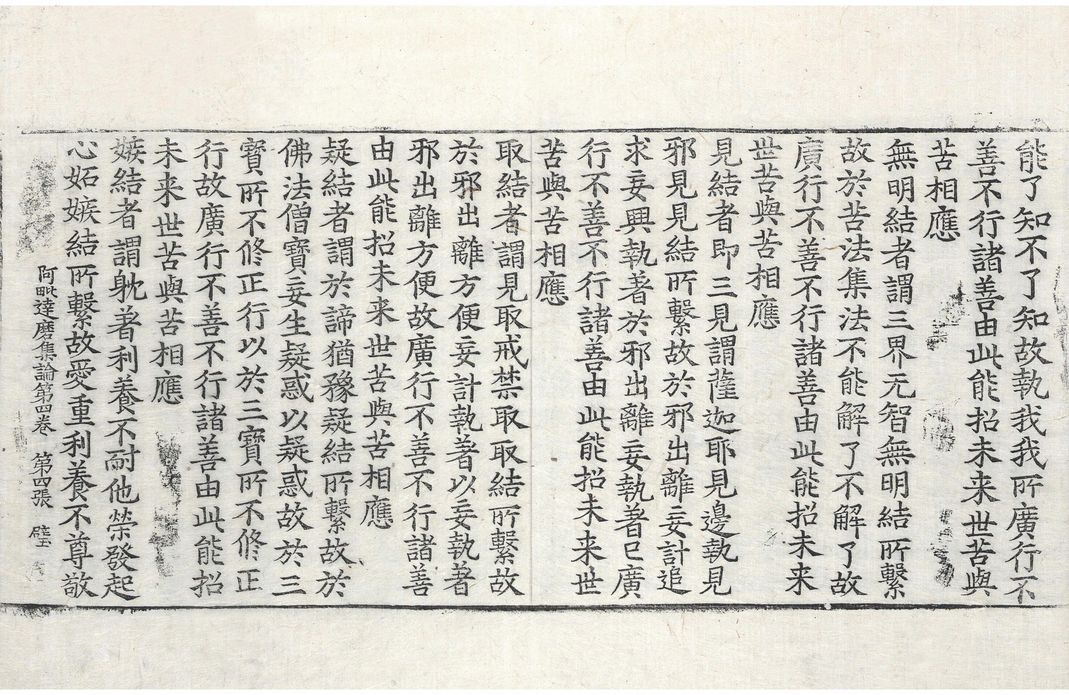 能了知不了知故執我我所廣行不
善不行諸善由此能招未来世苦與
苦相應
無明結者謂三界无智無明結所繫
故於苦法集法不能解了不解了故
廣行不善不行諸善由此能招未来
世苦與苦相應
見結者即三見謂薩迦耶見邊執見
邪見見結所繫故於邪出離妄計追
求妄興執著於邪出離妄執著已廣
行不善不行諸善由此能招未来世
苦與苦相應
取結者謂見取戒禁取取結所繫故
於邪出離方便妄計執著以妄執著
邪出離方便故廣行不善不行諸善
由此能招未来世苦與苦相應
疑結者謂於諦猶豫疑結所繫故於
佛法僧寶妄生疑惑以疑惑故於三
寶所不修正行以於三寶所不修正
行故廣行不善不行諸善由此能招
未来世苦與苦相應
嫉結者謂躭著利養不耐他榮發起
心妬嫉結所繫故愛重利養不尊敬
阿毗達磨集論第四卷 第四張 璧